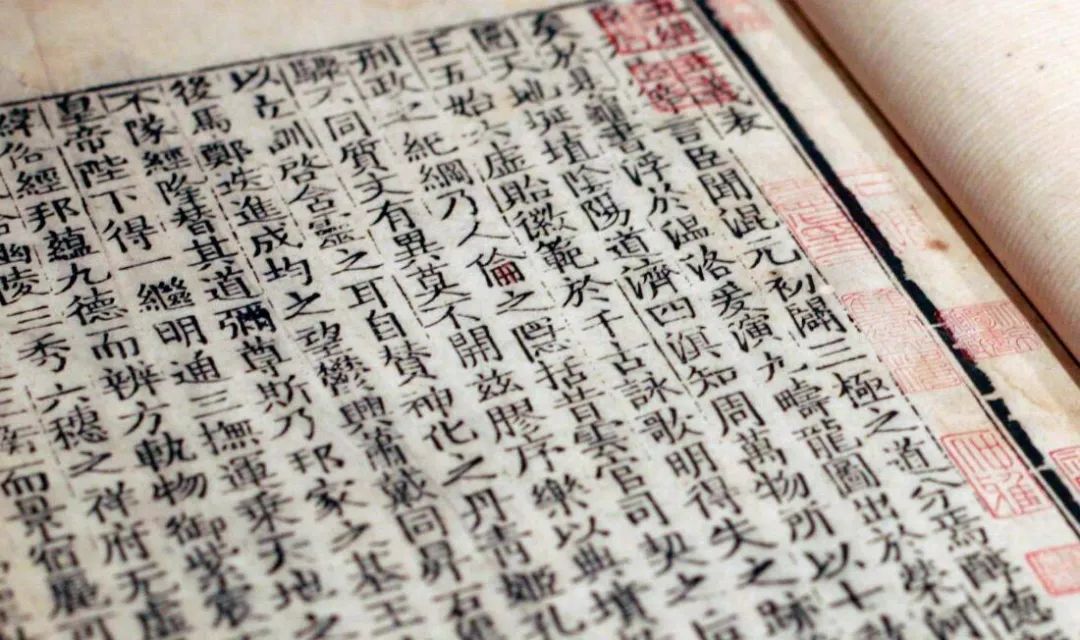 五經正義表
言臣聞混元初闢三極之道分焉醇德
矣於是龜書浮於温洛爰演九疇龍圖出於榮河
圍天地埏埴陰陽道濟四溟知周萬物所以
王五始六虛貽徽範於千古詠歌明得失之跡
刑政之紀綱乃人倫之隱括昔雲官司契之后
驟不同質文有異莫不開兹膠序樂以典墳
以立訓啓含靈之耳目赞神化之丹青姬孔
後馬鄭迭進成均之望鬱興蕭戴同昇石
不隊經隆替其道彌尊斯乃邦家之基王
皇帝陛下得一繼明通三撫運乘天地之
緯俗經邦蘊九德而辨方軌物御紫宸
洽幽陵三秀六穗之祥府无虛
衡而景宿麗可